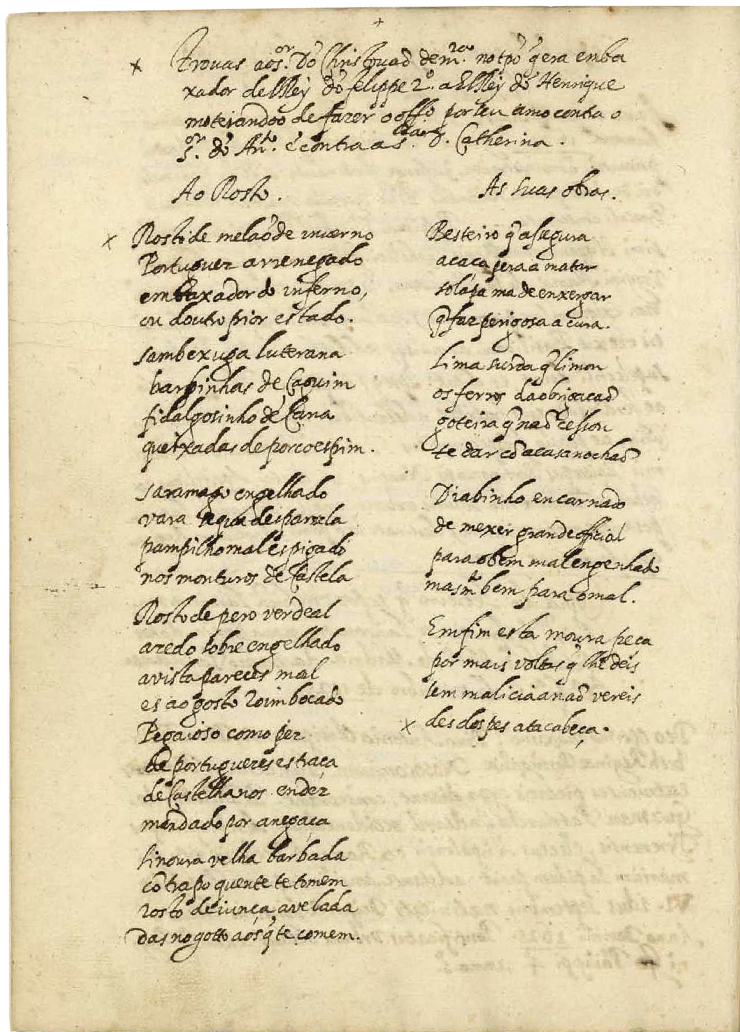 Trovas ao s.or Dõ Christovaõ de m.ra no tpõ q̃ era emba
xador del Rey dõ felippe 2.º a El Rey dõ Henrique
motejandoo de fazer o offo por seu amo contra o
s.or dõ An.to e contra a s.ra D. Catherina.
Ao Rosto.
Rosti de melaõ de inverno
Portuguez arrenegado
embaxador do inferno,
ou doutro pior estado.
sambexuga luterana
barbinhas de Capuim
fidalgosinho de Cana
queixadas de porco espim.
saramago engelhado
vara de parcela
pampilho mal espigado
nos monturos de Castela
Rosto de pero verdeal
azedo sobre engelhado
a vista pareces mal
es ao gosto Roim bocado
Pegajoso como pez
de portugueses es traça
de Castelhanos endez
mandado por anegaça
sinoura velha barbada
cõ trapo quente te tomem
rosto de iunça avelada
das no gotto aos q̃ te comem.
As suas obras.
Besteiro q̃ assegura
a caça pera a matar
solapa ma de enxergar
q̃ faz perigosa a cura.
Lima surda q̃ limou
os ferros da obrigaçaõ
goteira q̃ naõ cessou
te dar cõ a casa no chaõ
Diabinho encarnado
de mexer grande official
para o bem mal engenhado
mas m.to bem para o mal.
Em fim esta moura peca
por mais voltas q̃ lhe deis
tem malicia a naõ vereis
des dos pes ata cabeça.